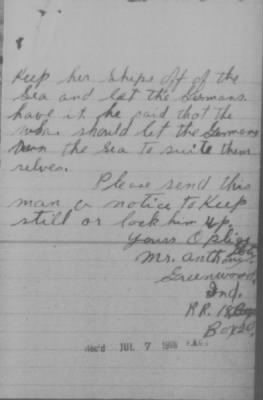 Keep her ships off of the
Sea and let the Germans.
have it. he said that the
U.S. should let the Germans
run the Sea to suite them
selves.
Please send this
man a notice to Keep
still or lock him up.
Yours
Mr. Anthony
Greenwood,
Ind.
R.R. 18
Box
Rec'd JUL 7